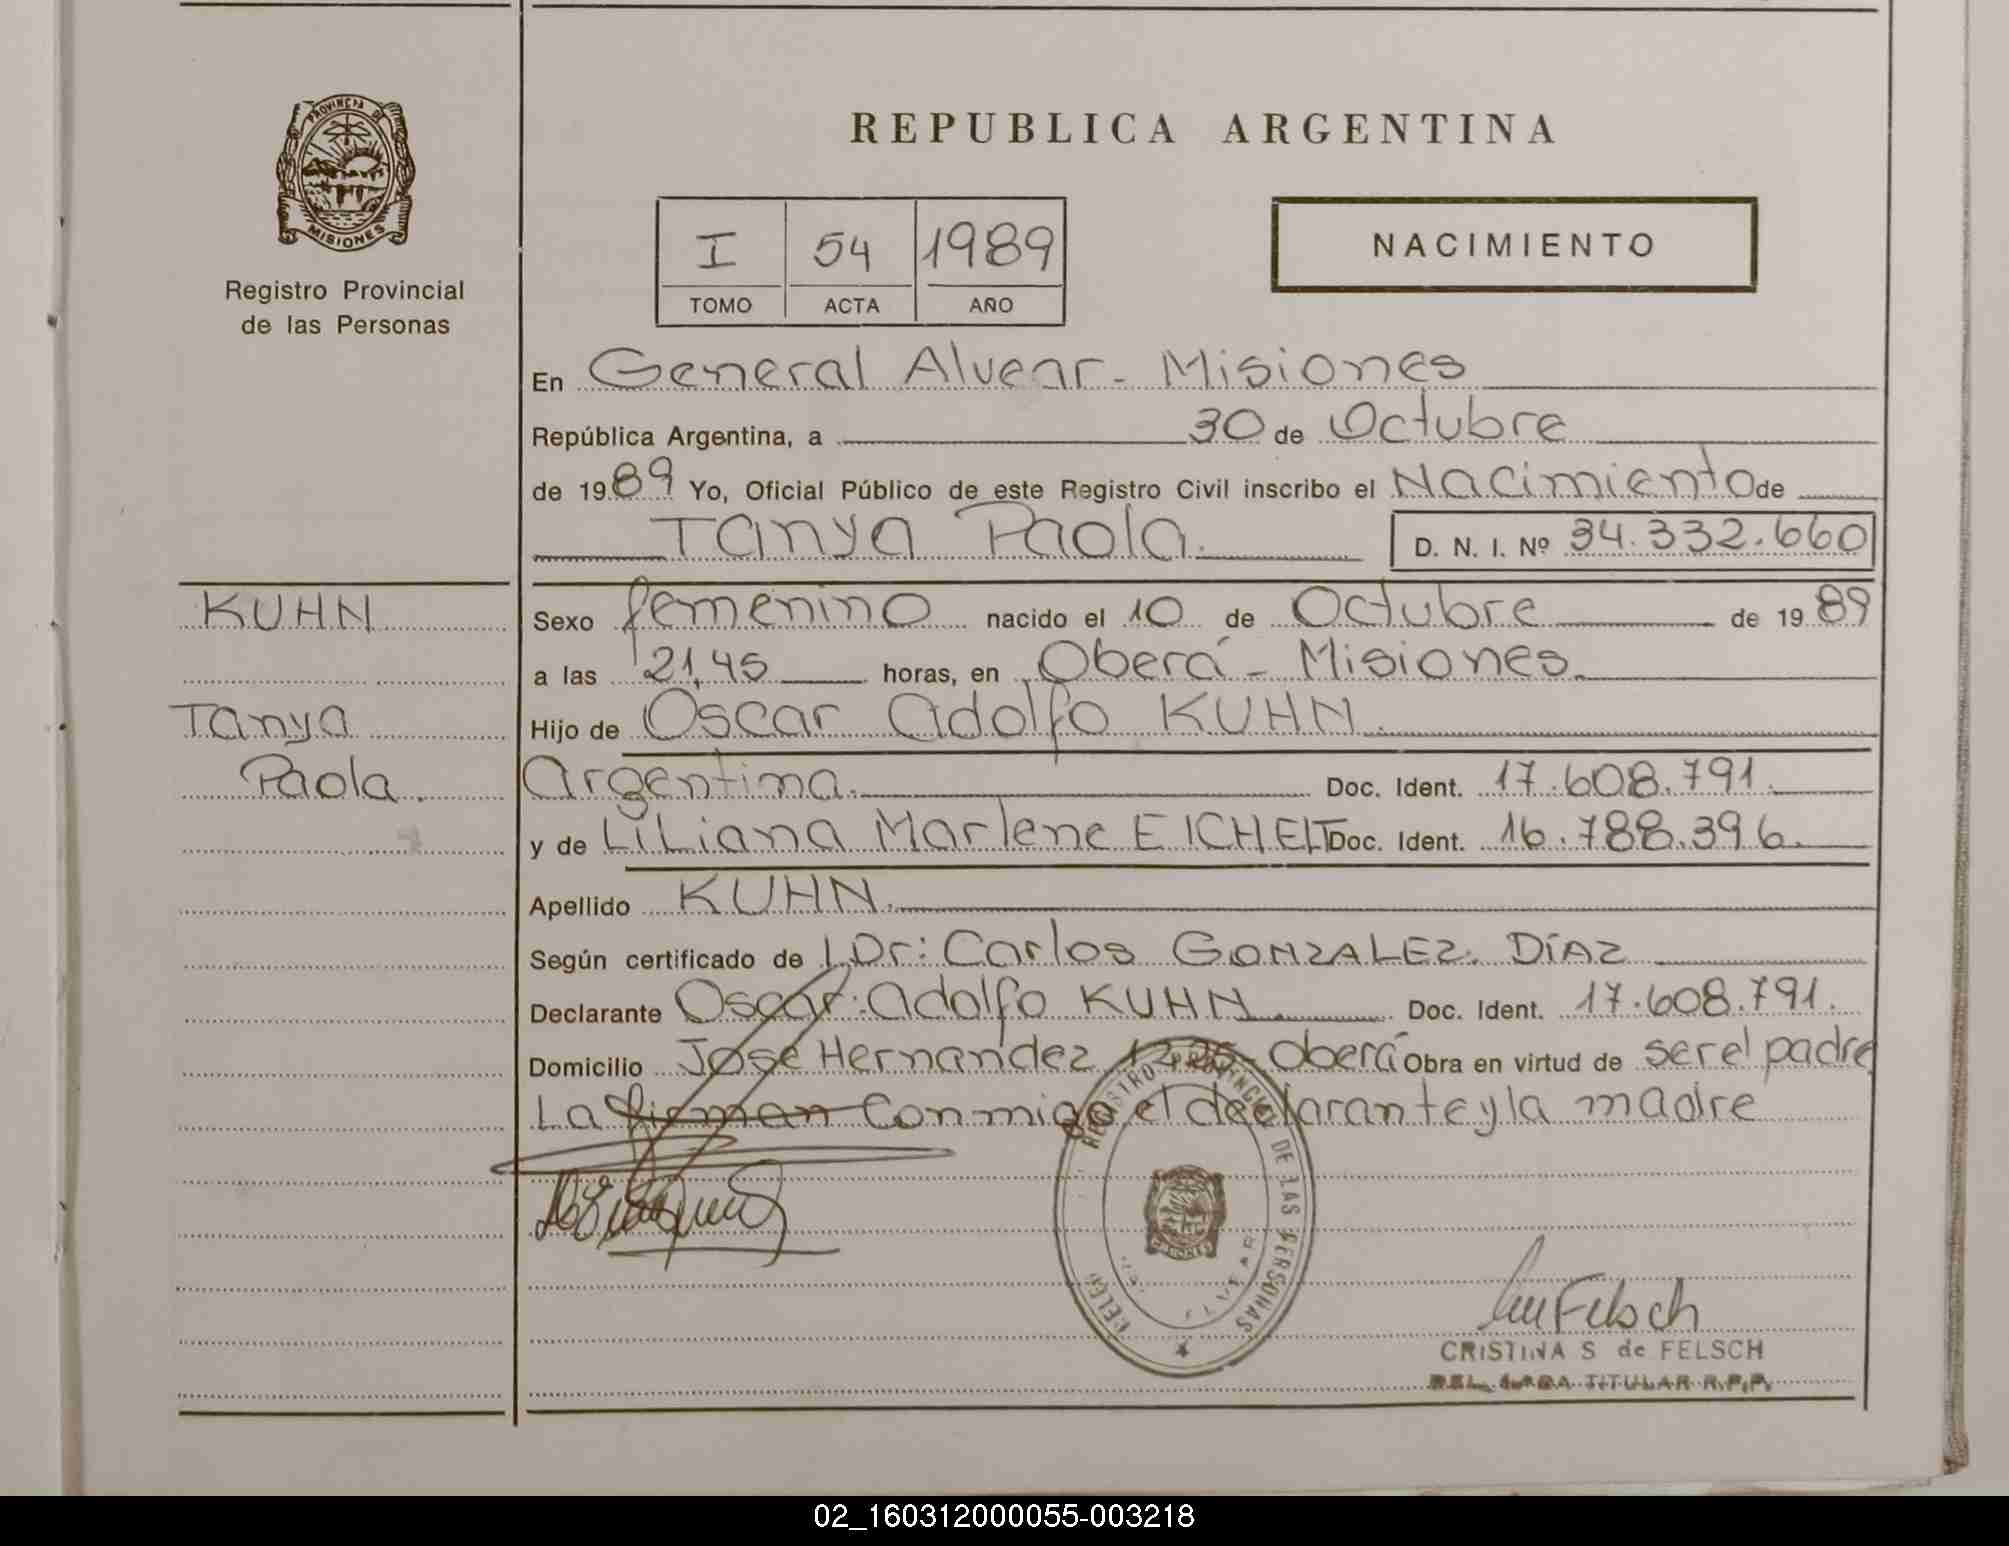 PROVINCIA DE
MISIONES
Registro Provincial
de las Personas
REPUBLICA ARGENTINA
I 54 1989
TOMO ACTA AÑO
NACIMIENTO
En General Alvear - Misiones
República Argentina, a 30 de Octubre
de 1989 Yo, Oficial Público de este Registro Civil inscribo el Nacimiento de
Tanya Paola. D. N. I. Nº 34.332.660
KUHN
Tanya
Paola.
Sexo femenino nacido el 10 de Octubre de 1989
a las 21,45 horas, en Oberá - Misiones.
Hijo de Oscar Adolfo KUHN.
Argentina. Doc. Ident. 17.608.791.
y de Liliana Marlene EICHELT Doc. Ident. 16.788.396.
Apellido KUHN.
Según certificado de Dr: Carlos GONZALEZ DÍAZ
Declarante Oscar Adolfo KUHN Doc. Ident. 17.608.791.
Domicilio José Hernandez Oberá Obra en virtud de ser el padre
La firman Conmigo el declarante y la madre
REGISTRO PROVINCIAL DE LAS PERSONAS
MISIONES
Felsch
CRISTINA S de FELSCH
TITULAR R.P.P.
02_160312000055-003218